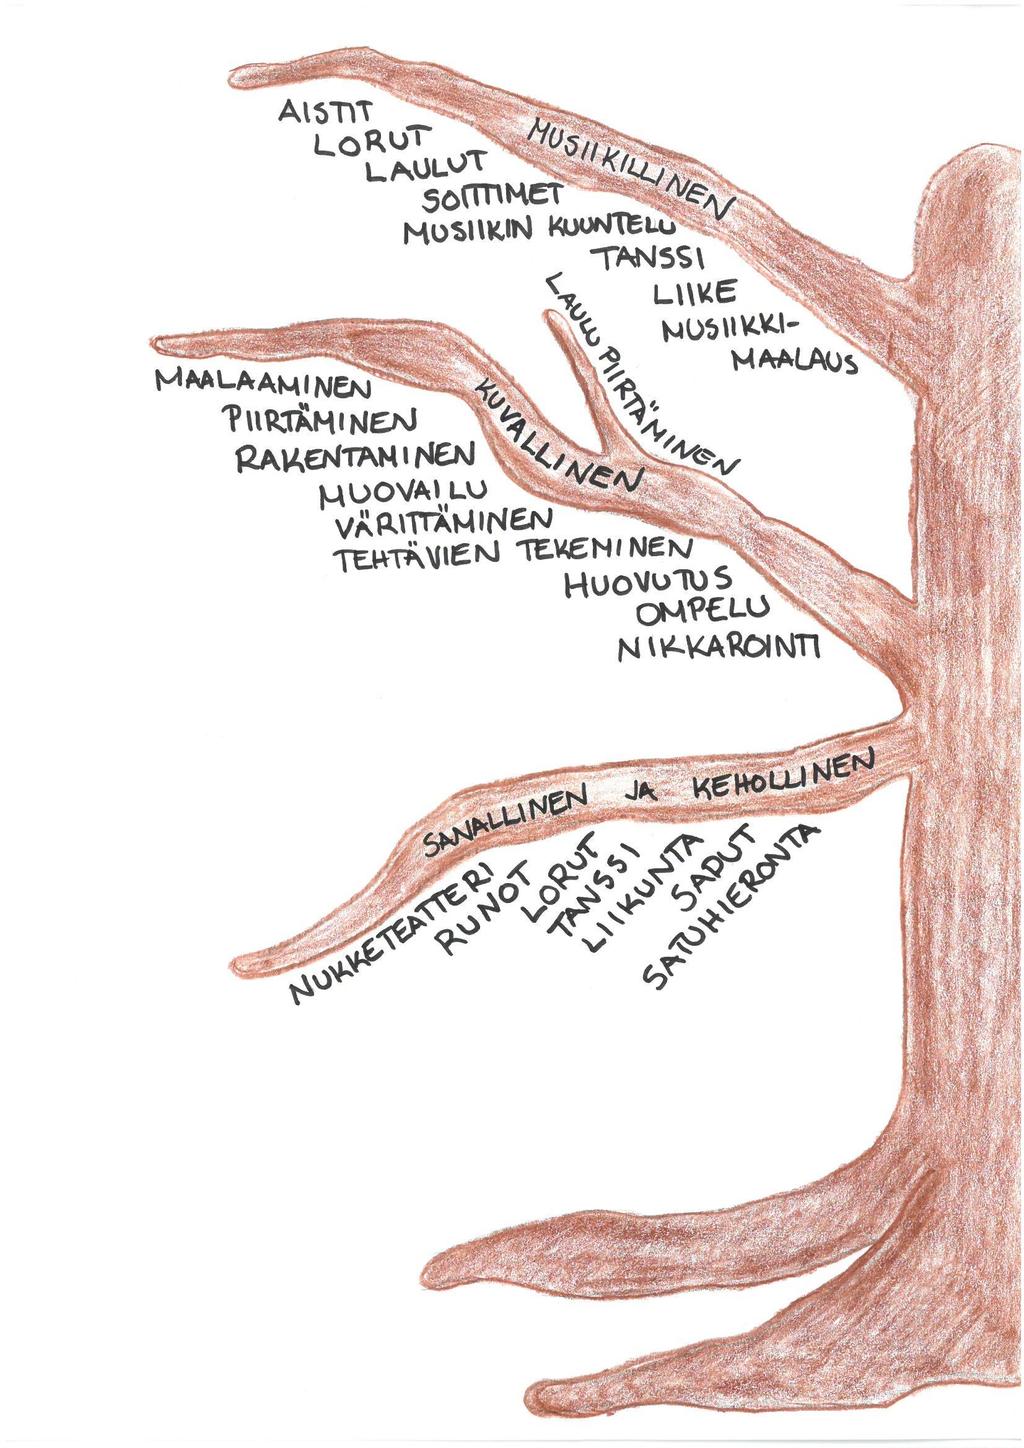 MUSIIKILLINEN
AISTIT
LORUT
LAULUT
SOITTIMET
MUSIIKIN KUUNTELU
TANSSI
LIIKE
MUSIIKKI-
MAALAUS
KUVALLINEN
LAULU PIIRTÄMINEN
MAALAAMINEN
PIIRTÄMINEN
RAKENTAMINEN
MUOVAILU
VÄRITTÄMINEN
TEHTÄVIEN TEKEMINEN
HUOVUTUS
OMPELU
NIKKAROINTI
SANALLINEN JA KEHOLLINEN
NUKKETEATTERI
RUNOT
LORUT
TANSSI
LIIKUNTA
SADUT
SATUHIERONTA